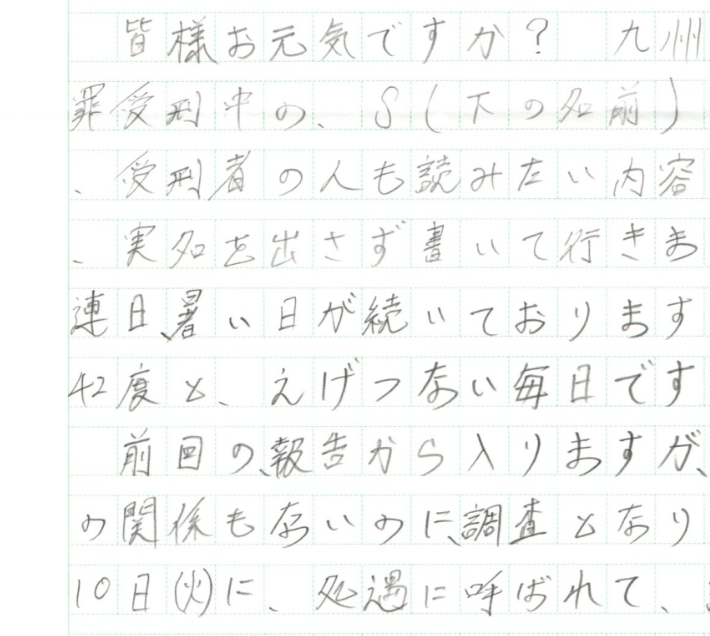 皆様お元気ですか？ 九州
罪受刑中の、S(下の名前)
、受刑者の人も読みたい内容
、実名を出さず書いて行きま
連日、暑い日が続いております
42度と、えげつない毎日です
前回の、報告から入りますが、
の関係もないのに、調査となり
10日(火)に、処遇に呼ばれて、